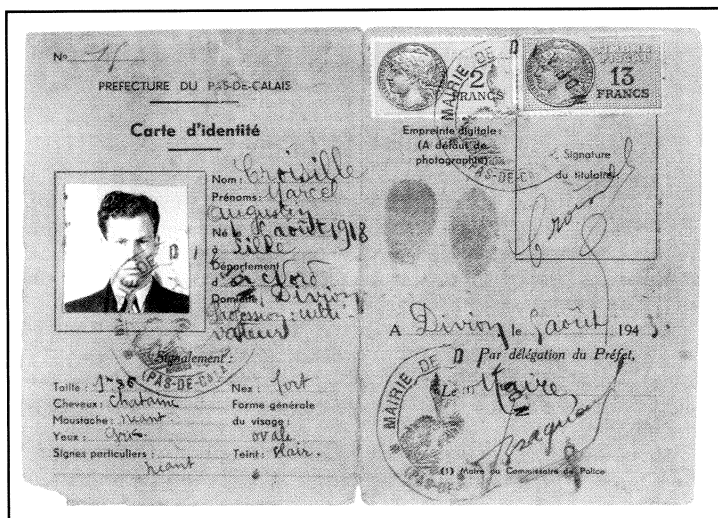 No 15
PREFECTURE DU PAS-DE-CALAIS
Carte d'identité
Nom: Croisille
Prénoms: Marcel
Augustin
Né le 8 août 1918
à Lille
Département
d Nord
Domicile: Divion
Profession: culti-
vateur
Signalement:
Taille: 1m
Cheveux: chatains
Moustache: néant
Yeux: gris
Signes particuliers:
néant
Nez: fort
Forme générale
du visage:
ovale
Teint: clair.
(PAS-DE-CALA
2
FRANCS
13
FRANCS
MAIRIE DE D
(PAS-DE-CA
Empreinte digitale:
(A défaut de
photographie)
Signature
du titulaire:
A Divion, le août 1943.
Par délégation du Préfet,
Le Maire
MAIRIE DE D
(PAS-DE-
(1) Maire ou Commissaire de Police